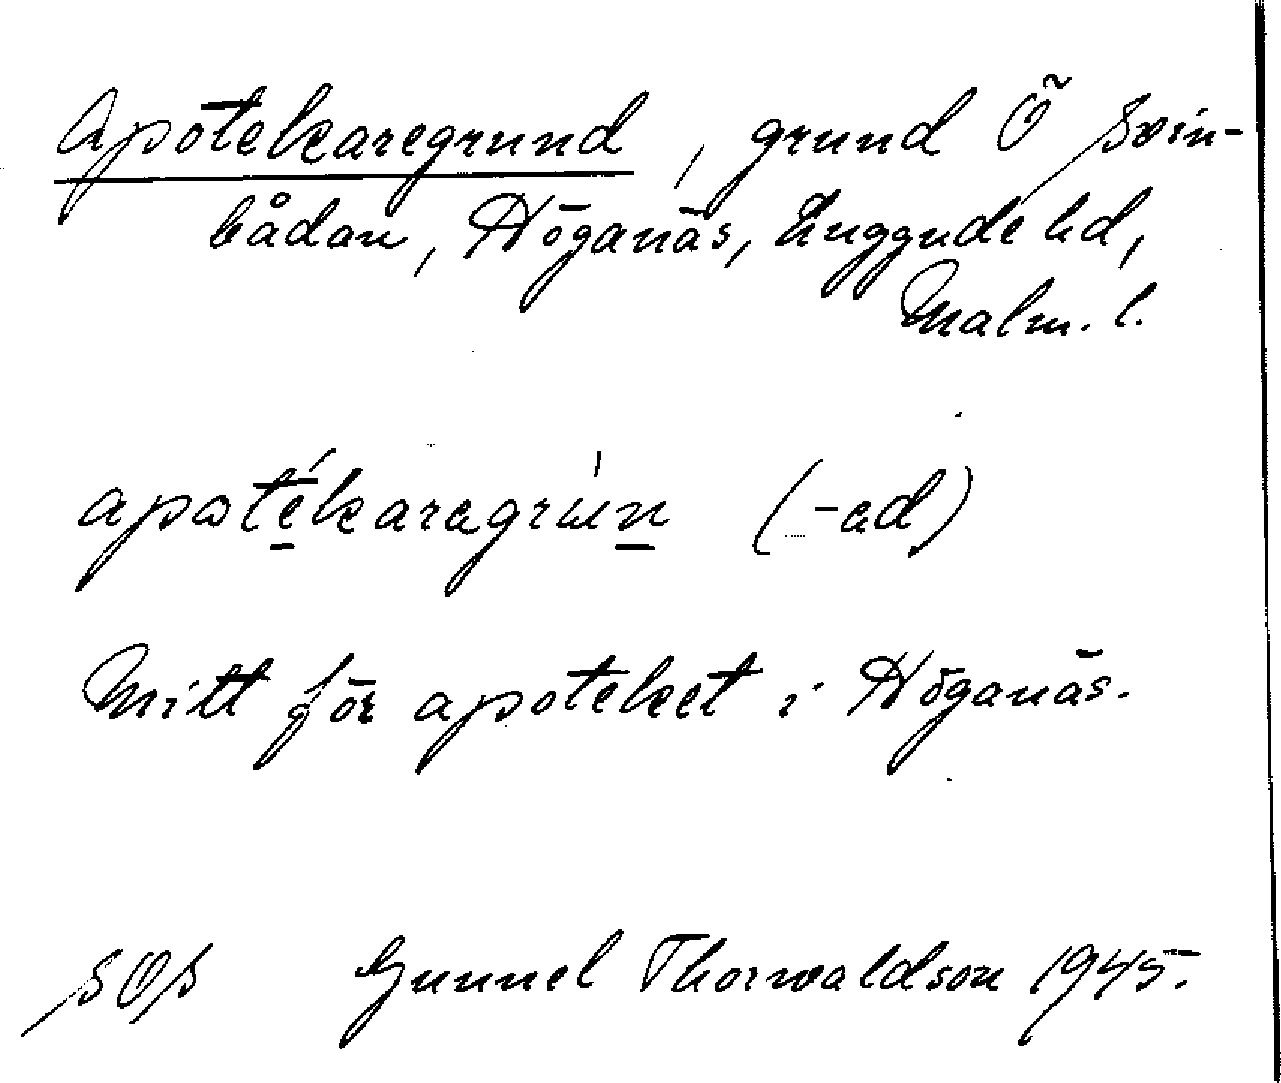 Apotekaregrund, grund Ö Svin-
bådan, Höganäs, Luggude hd,
Malm. l.
apɷtékaragrùn (-ad)
Mitt för apoteket i Höganäs.
SOS Gunnel Thorwaldson 1945.